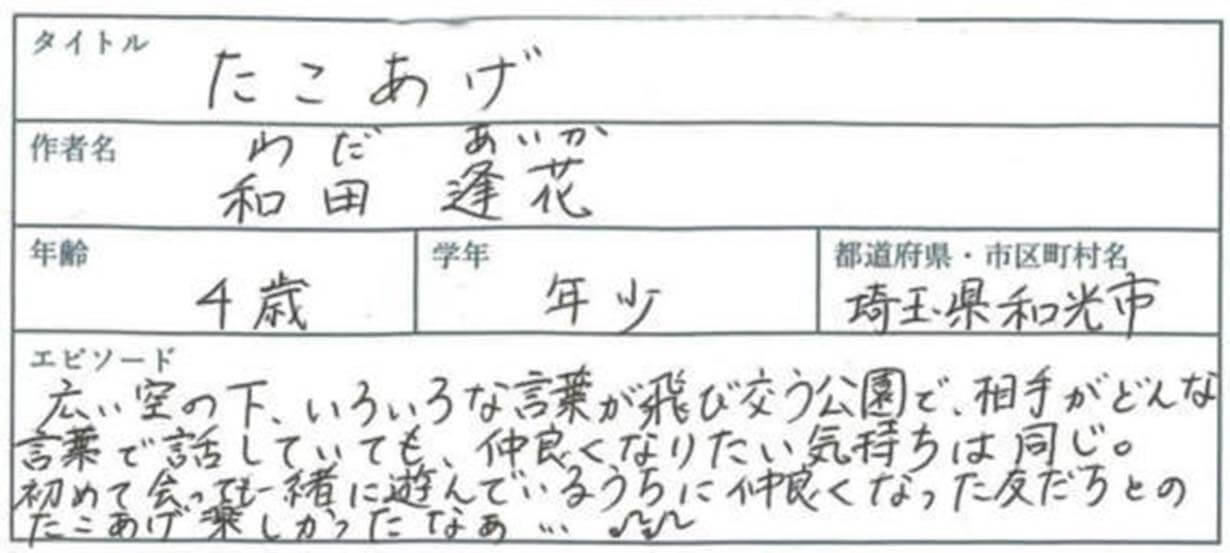 タイトル
たこあげ
作者名
わだ あいか
和田 逢花
年齢
4歳
学年
年少
都道府県・市区町村名
埼玉県和光市
エピソード
広い空の下、いろいろな言葉が飛び交う公園で、相手がどんな
言葉で話していても、仲良くなりたい気持ちは同じ。
初めて会っても一緒に遊んでいるうちに仲良くなった友だちとの
たこあげ楽しかったなぁ…